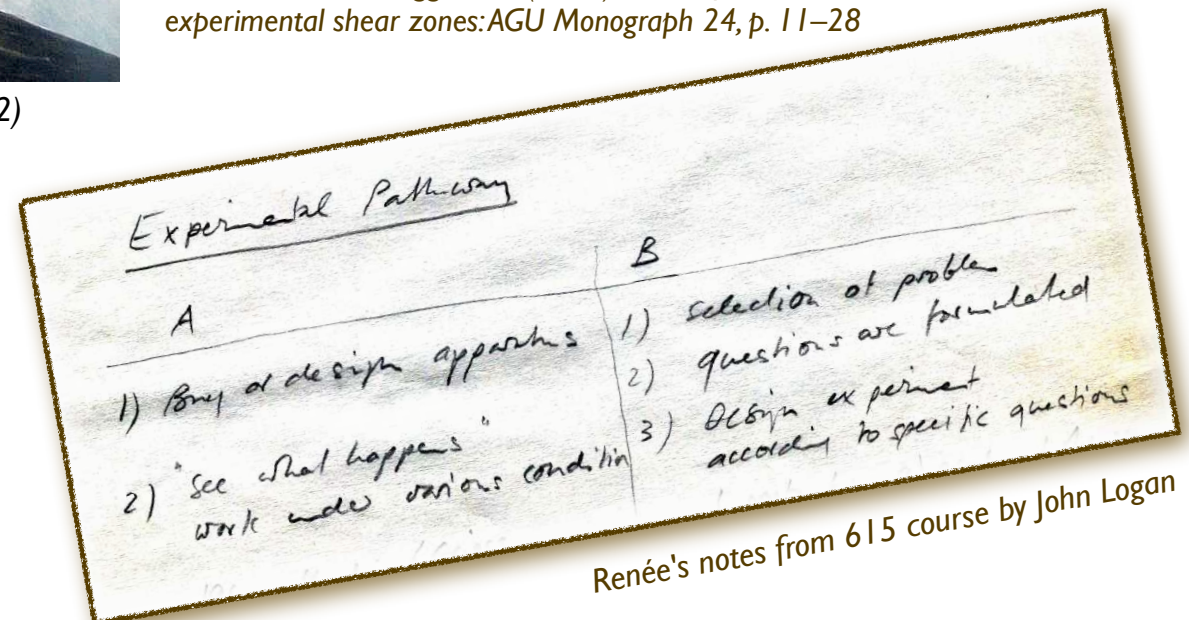 experimental shear zones: AGU Monograph 24, p. 11–28
2)
Experimental Pathway
A
1) Buy or design apparatus
2) "See what happens"
work under various condition
B
1) selection of problem
2) questions are formulated
3) Design experiment
according to specific questions
Renée's notes from 615 course by John Logan